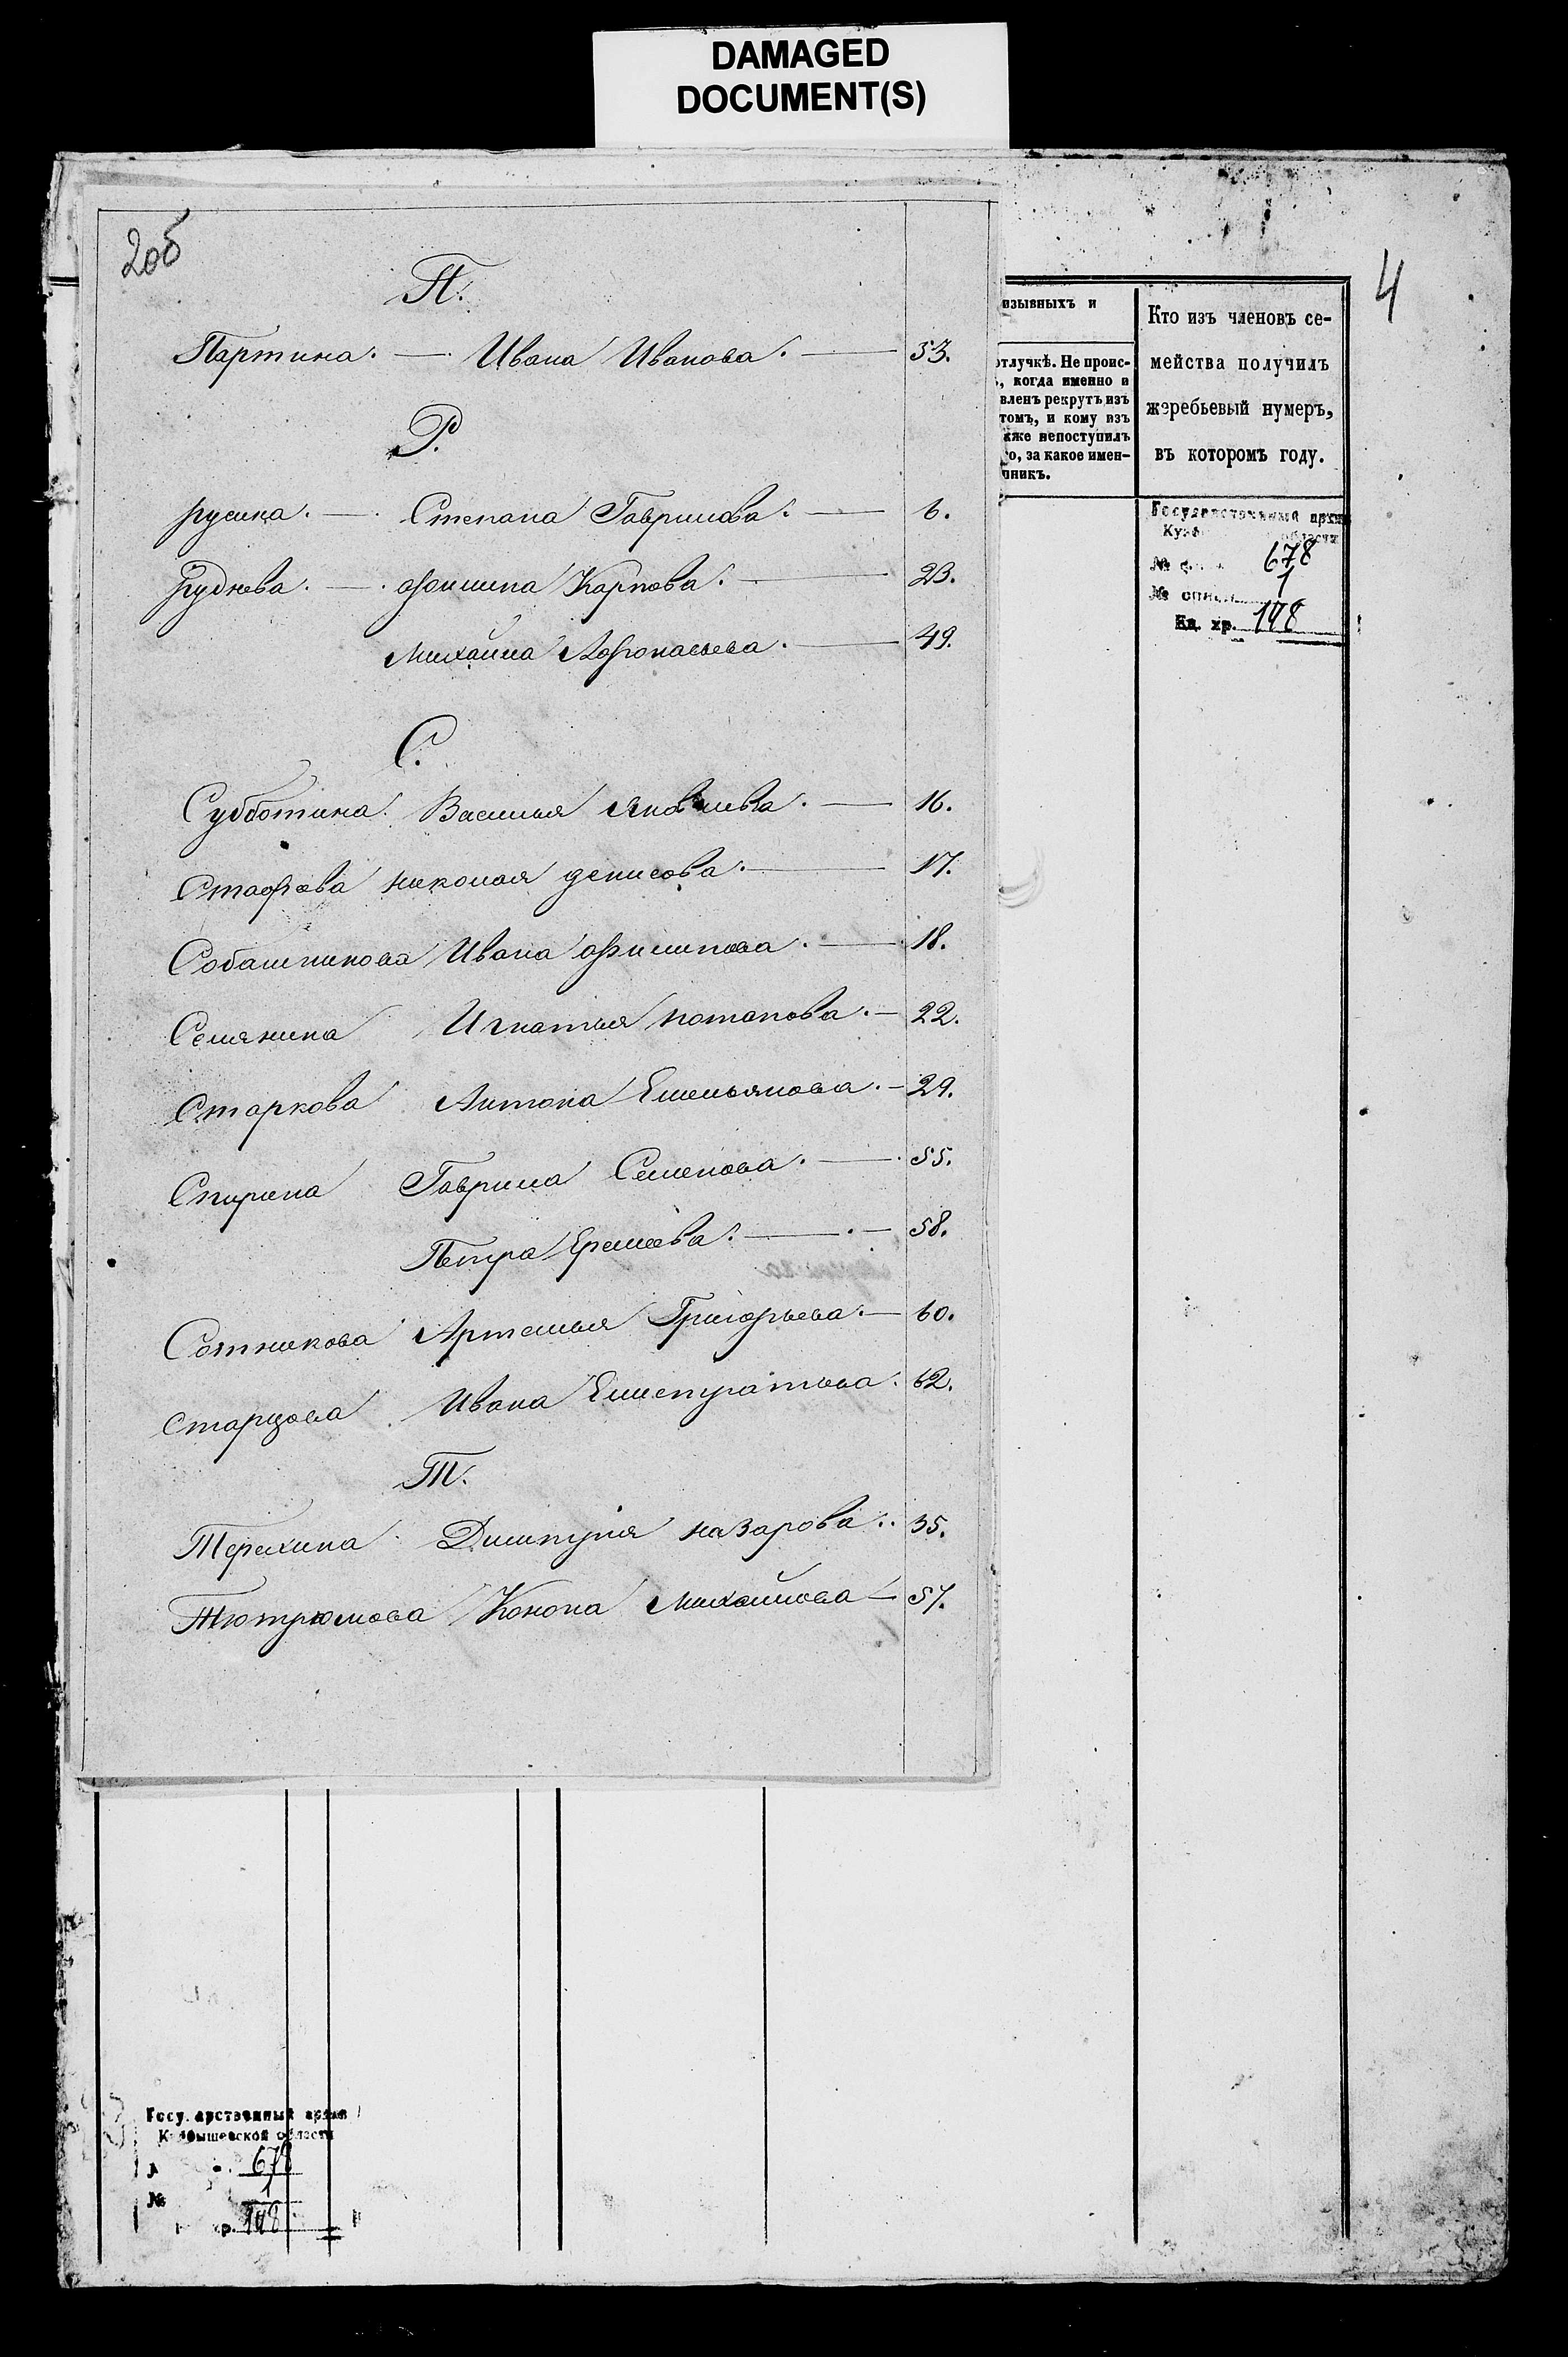 DAMAGED
DOCUMENT(S)
2об
П.
Партина. — Ивана Иванова. — 53.
Р.
русина. — Степана Гаврилова. — 6.
Руднева. — филипа Карпова. — 23.
Михайла Афонасьева. — 49.
С.
Субботина. Василья Яковлева. — 16.
Стафева николая денисова. — 17.
Собашникова Ивана филипова. — 18.
Семянина Игнатья потапова. — 22.
Старкова Антона Емельянова. — 29.
Спирина Гаврила Семенова. — 55.
Петра Еремеева. — 58.
Сотникова Артемья Григорьева. — 60.
старцова Ивана 62.
Т.
Терехина Дмитрия назарова. 35.
Тютрюмова Конона Михайлова — 57.
4
изывныхъ и
отлучкѣ. Не проис-
когда именно и
вленъ рекрутъ изъ
томъ, и кому изъ
кже непоступилъ
о, за какое имен-
никъ.
Кто изъ членовъ се-
мейства получилъ
жеребьевый нумеръ,
въ которомъ году.
Государственный архив
области
№ 678
№ описи 1
Ед. хр. 148
Государственный архив
Куйбышевской области
678
№ 1
р. 148